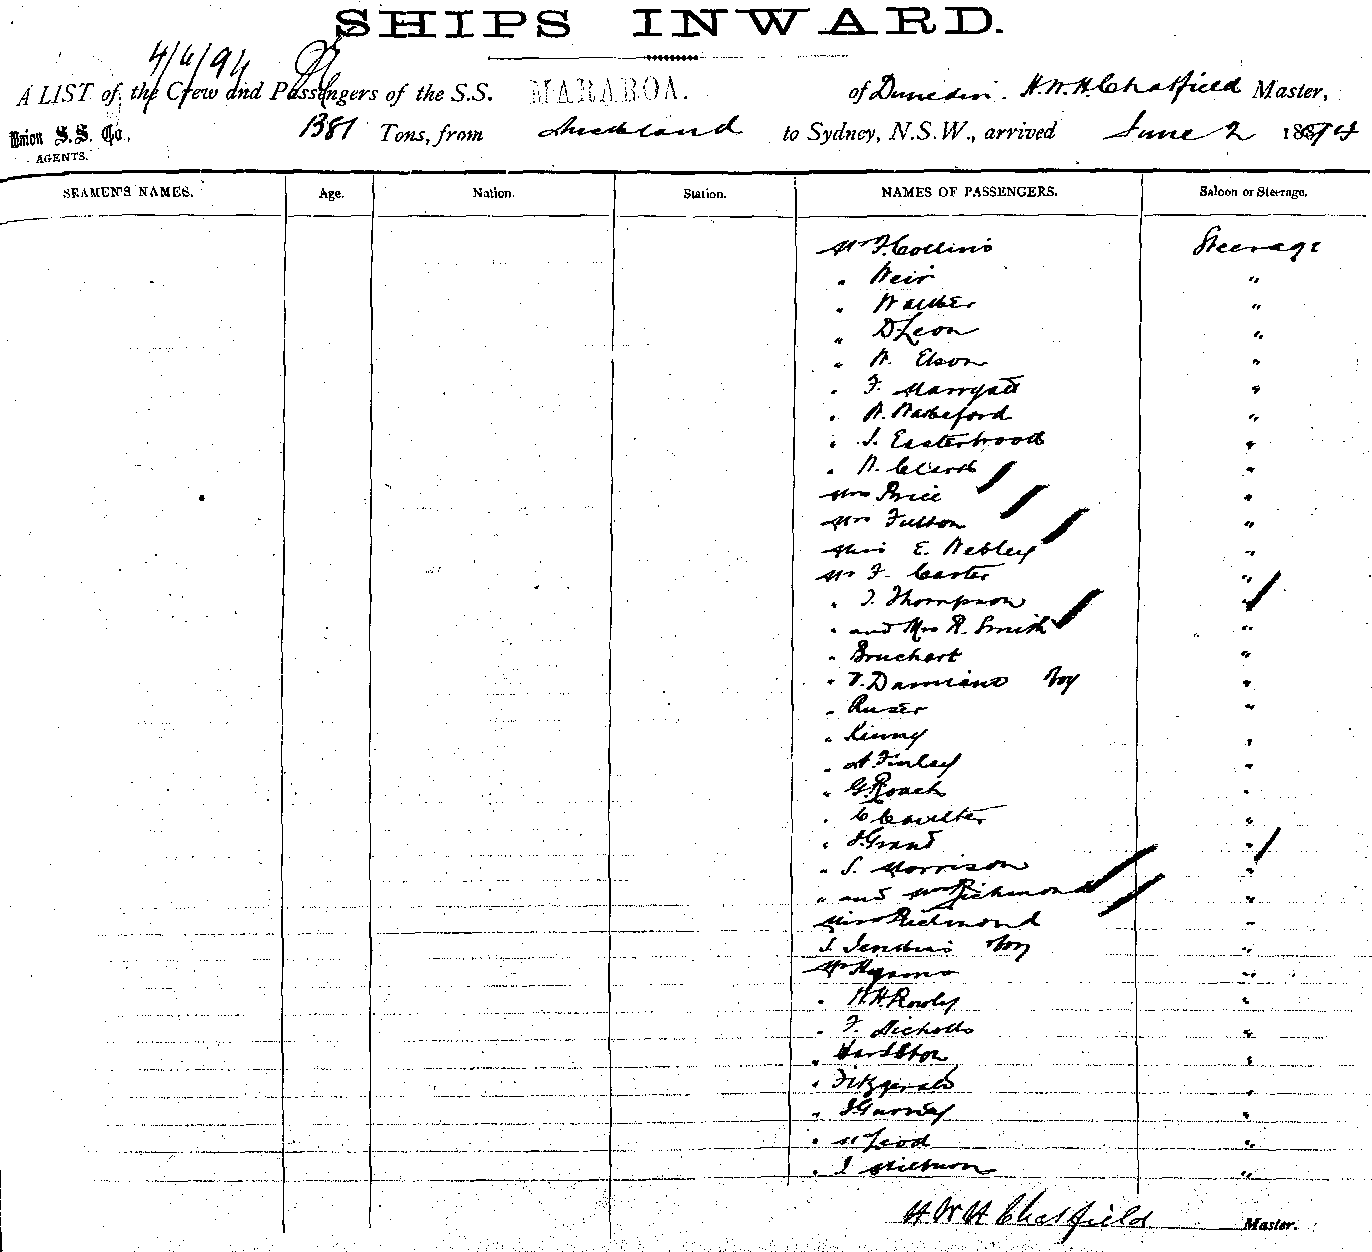 SHIPS INWARD.
4/6/94
A LIST of the Crew and Passengers of the S.S. MARAROA. of Dunedin. H.W.H. Chatfield Master,
Union S.S. Co., 1381 Tons, from Auckland to Sydney, N.S.W., arrived June 2 1894
AGENTS.
SEAMEN'S NAMES. Age. Nation. Station. NAMES OF PASSENGERS. Saloon or Steerage.
Mr F Collins Steerage
" Weir "
" Walker "
" D Leon "
" W. Elson "
" F. Marryatt "
" W. Wakeford "
" J. Easterbrook "
" W. Clark "
Mrs Price "
Mrs Fulton "
Miss E. Webley "
Mr F. Carter "
" J. Thompson "
" and Mrs R. Smith "
" Bruchart "
" V. Damiano boy "
" "
" Kinny "
" A Finley "
" G Roach "
" C Coulter "
" J Grant "
" S. Morrison "
" and Mrs Richmond "
Miss Richmond "
J Jenkins boy "
Mr "
" W.H. Rowly "
" F. Nicholls "
" "
" Fitzgerald "
" J Garvey "
" McLeod "
" J "
H W H Chatfield Master.